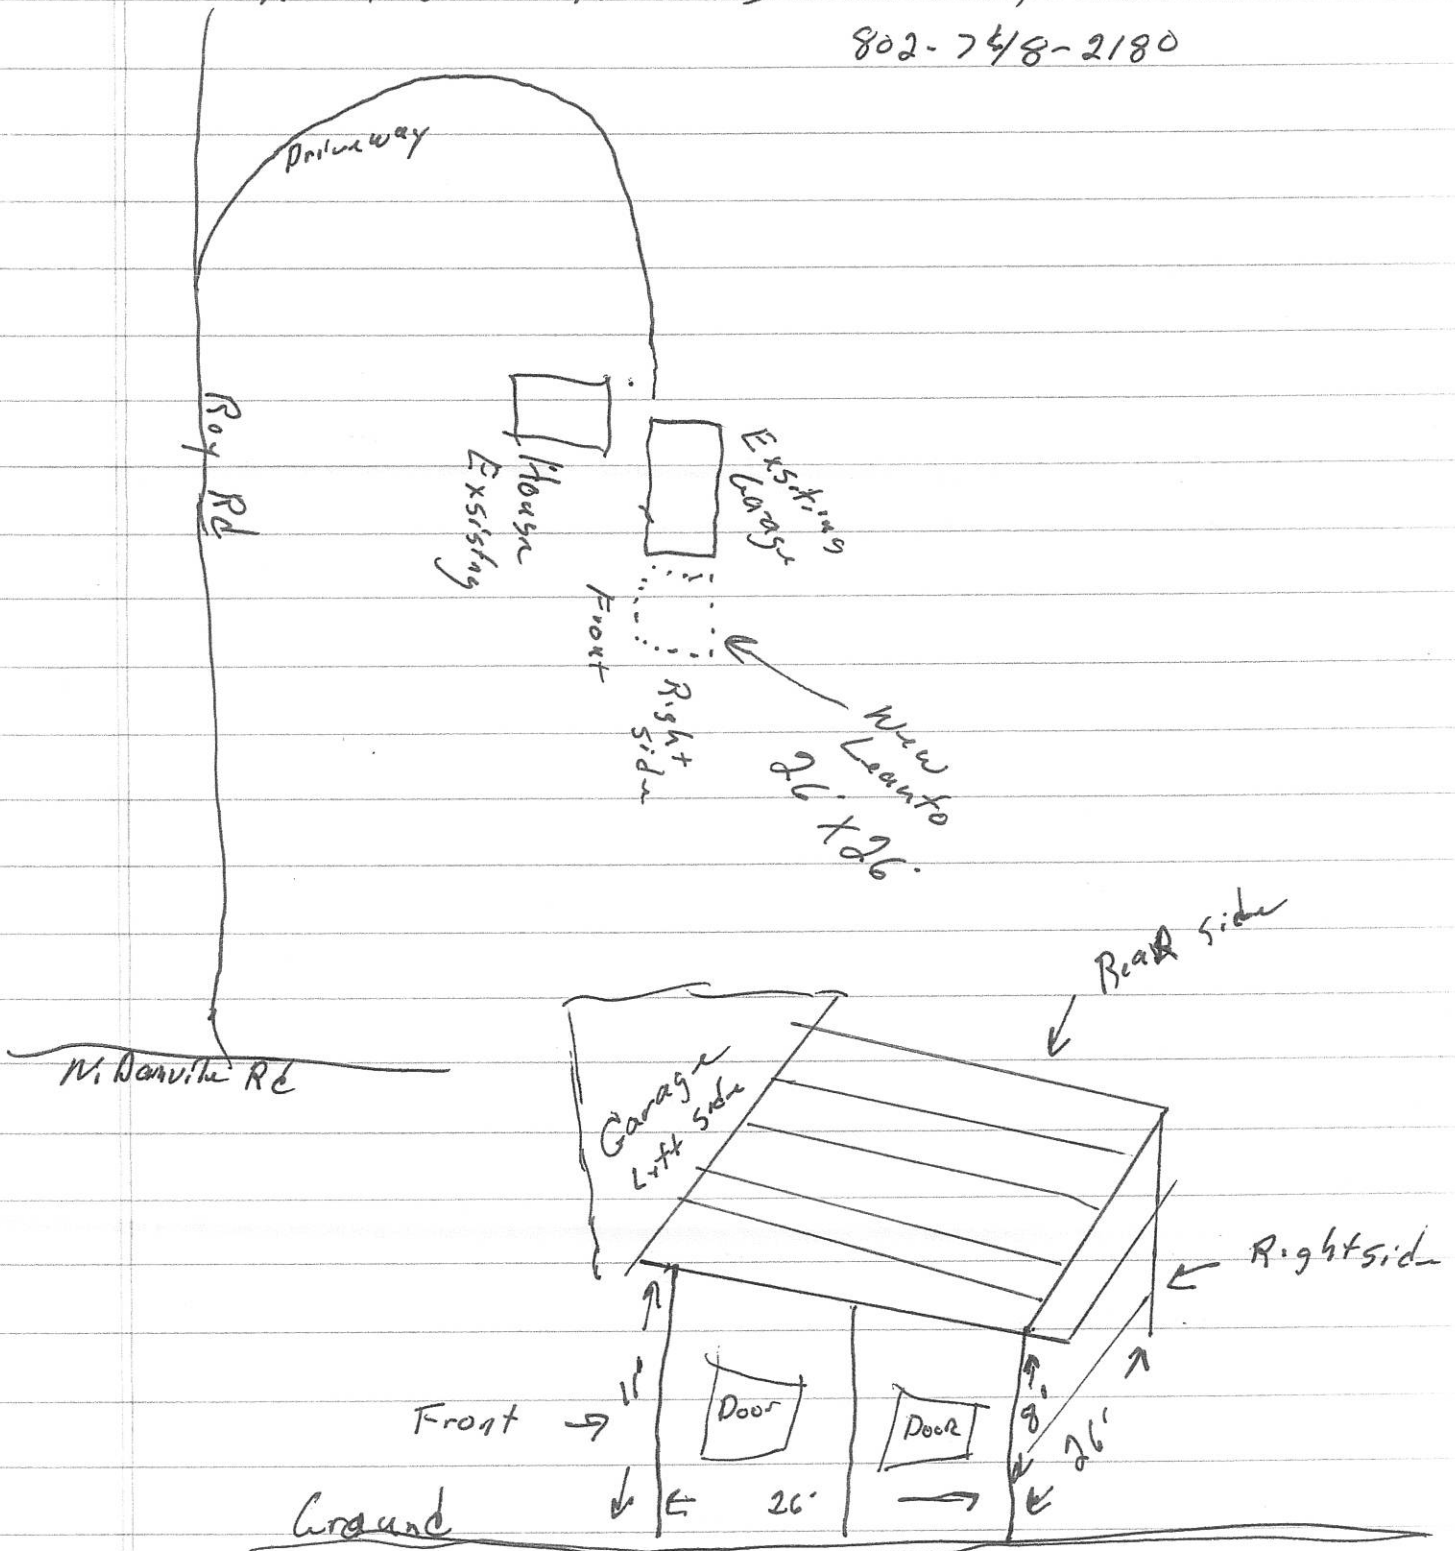 802-748-2180
Driveway
Roy Rd
House
Exsisting
Exsiting
Garage
Front
Right
side
New
Leanto
26' x 26'
N. Danville Rd
Rear side
Garage
Left side
Right side
11'
Door
Door
8'
26'
Front
26'
Ground